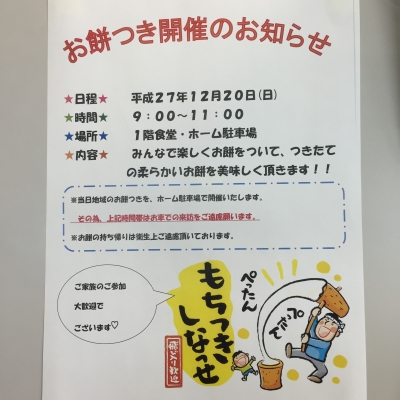 お餅つき開催のお知らせ
★日程★ 平成27年12月20日(日)
★時間★ 9:00～11:00
★場所★ 1階食堂・ホーム駐車場
★内容★ みんなで楽しくお餅をついて、つきたて
の柔らかいお餅を美味しく頂きます！！
※当日地域のお餅つきを、ホーム駐車場で開催いたします。
その為、上記時間帯はお車での来訪をご遠慮願います。
※お餅の持ち帰りは衛生上ご遠慮頂いております。
ご家族のご参加
大歓迎で
ございます♡
もちつき
しなっせ
ぺったん